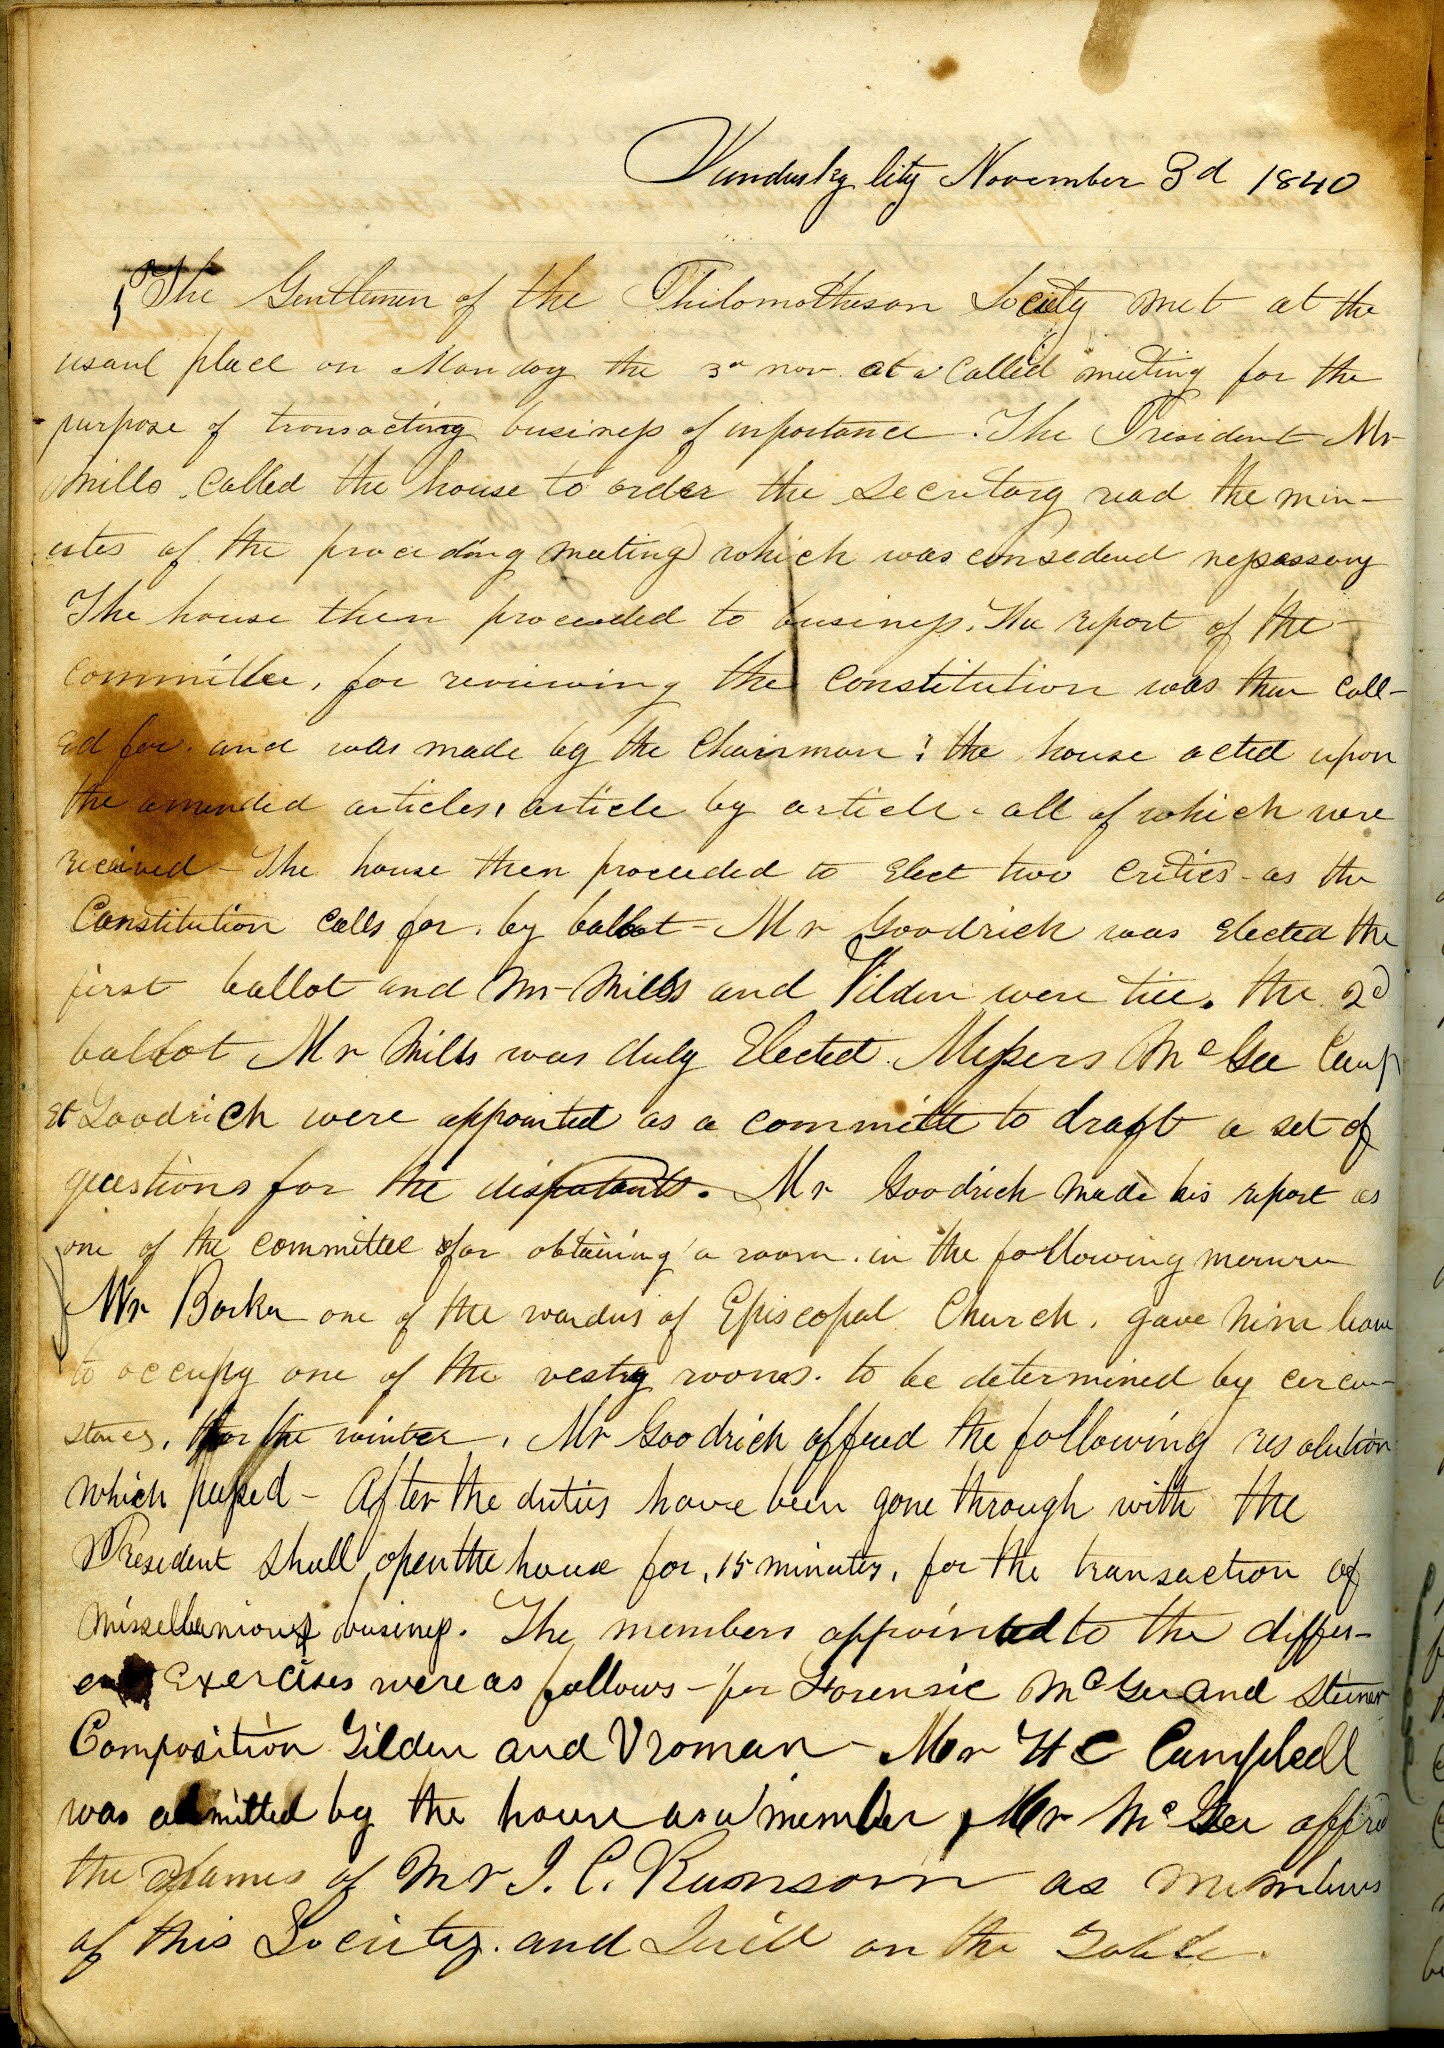 Sandusky City November 3d 1840
The Gentlemen of the Philomathesan Society met at the
usaul place on Monday the 3d nov at a Called meeting for the
purpose of transacting business of importance. The President Mr
Mills called the house to order the Secretary read the min-
utes of the preceding meeting which was considerd nessessary
The house then proceeded to business. The report of the
Committee, for reviewing the Constitution was then Call-
ed for and was made by the Chairman; the house acted upon
the amended articles, article by article - all of which were
received - The house then proceeded to Elect two Critics - as the
Constitution Calls for, by ballot - Mr Goodrich was Elected the
first ballot and Mr Mills and Tilden were tiee. the 2d
ballot Mr Mills was duly Elected. Messers McGee Camp
& Goodrich were appointed as a committe to draft a set of
questions for the disputants. Mr Goodrich made his report as
one of the committee for obtaining a room in the following
Mr Barker one of the wardens of Episcopal Church, gave him leave
to occupy one of the vestry rooms. to be determined by circum-
stances, for the winter. Mr Goodrich offered the following resolution
which passed - After the duties have been gone through with the
President shall open the house for, 15 minutes, for the transaction of
business. The members appointed to the differ-
ent Exercises were as follows - for Forensic McGee and Steiner
Composition Gilden and Vroman - Mr H C Campbell
was admitted by the house as a member, Mr McGee offered
the names of Mr J. C. Ransom as members
of this Society. and on the Table.